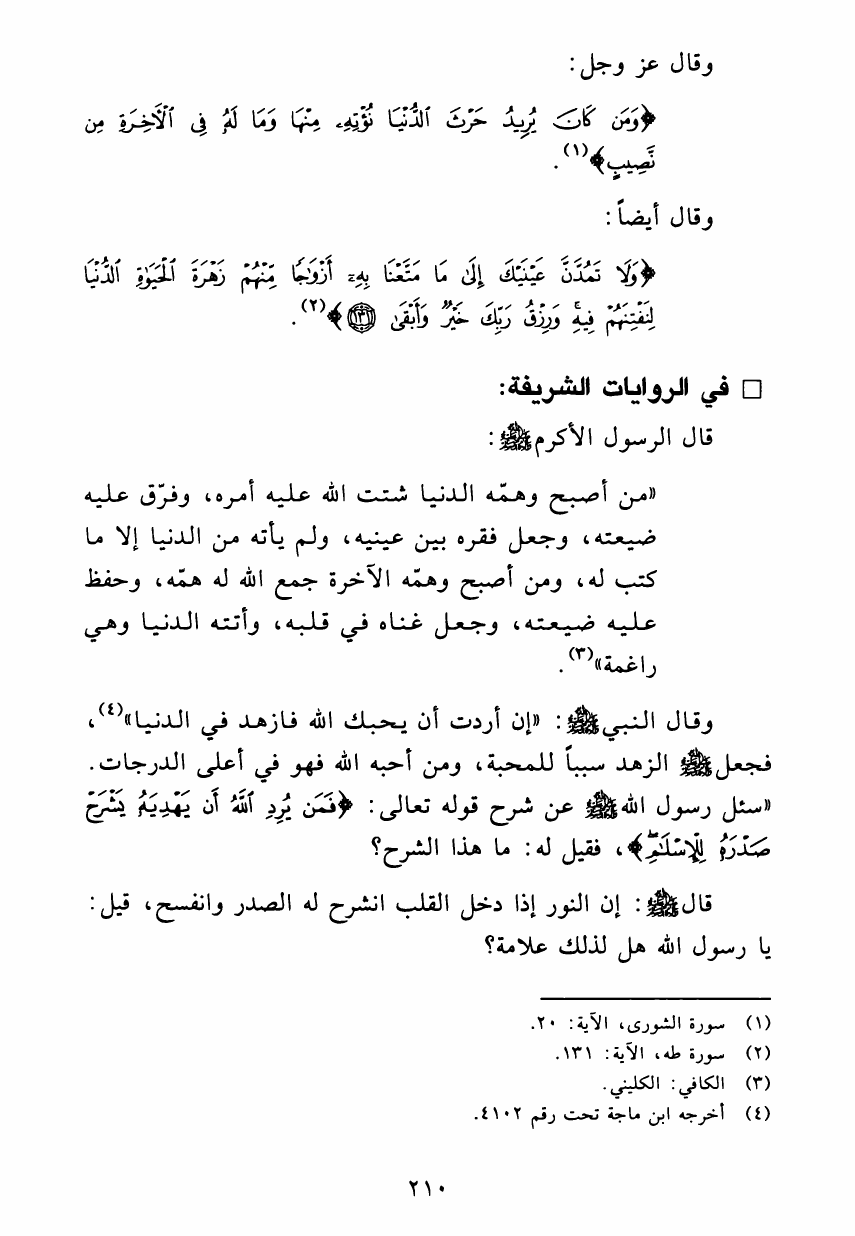 وقال عز وجل:
﴿وَمَن كَانَ يُرِيدُ حَرْثَ ٱلدُّنْيَا نُؤْتِهِۦ مِنْهَا وَمَا لَهُۥ فِى ٱلْءَاخِرَةِ مِن
نَّصِيبٍ﴾(١).
وقال أيضاً:
﴿وَلَا تَمُدَّنَّ عَيْنَيْكَ إِلَىٰ مَا مَتَّعْنَا بِهِۦٓ أَزْوَٰجًا مِّنْهُمْ زَهْرَةَ ٱلْحَيَوٰةِ ٱلدُّنْيَا
لِنَفْتِنَهُمْ فِيهِ ۚ وَرِزْقُ رَبِّكَ خَيْرٌ وَأَبْقَىٰ ١٣١﴾(٢).
□ في الروايات الشريفة:
قال الرسول الأكرم ﷺ:
«من أصبح وهمّه الدنيا شتت الله عليه أمره، وفرّق عليه
ضيعته، وجعل فقره بين عينيه، ولم يأته من الدنيا إلا ما
كتب له، ومن أصبح وهمّه الآخرة جمع الله له همّه، وحفظ
عليه ضيعته، وجعل غناه في قلبه، وأتته الدنيا وهي
راغمة»(٣).
وقال النبي ﷺ: «إن أردت أن يحبك الله فازهد في الدنيا»(٤)،
فجعل ﷺ الزهد سبباً للمحبة، ومن أحبه الله فهو في أعلى الدرجات.
«سئل رسول الله ﷺ عن شرح قوله تعالى: ﴿فَمَن يُرِدِ ٱللَّهُ أَن يَهْدِيَهُۥ يَشْرَحْ
صَدْرَهُۥ لِلْإِسْلَٰمِ ۖ﴾، فقيل له: ما هذا الشرح؟
قال ﷺ: إن النور إذا دخل القلب انشرح له الصدر وانفسح، قيل:
يا رسول الله هل لذلك علامة؟
(١) سورة الشورى، الآية: ٢٠.
(٢) سورة طه، الآية: ١٣١.
(٣) الكافي: الكليني.
(٤) أخرجه ابن ماجة تحت رقم ٤١٠٢.
٢١٠